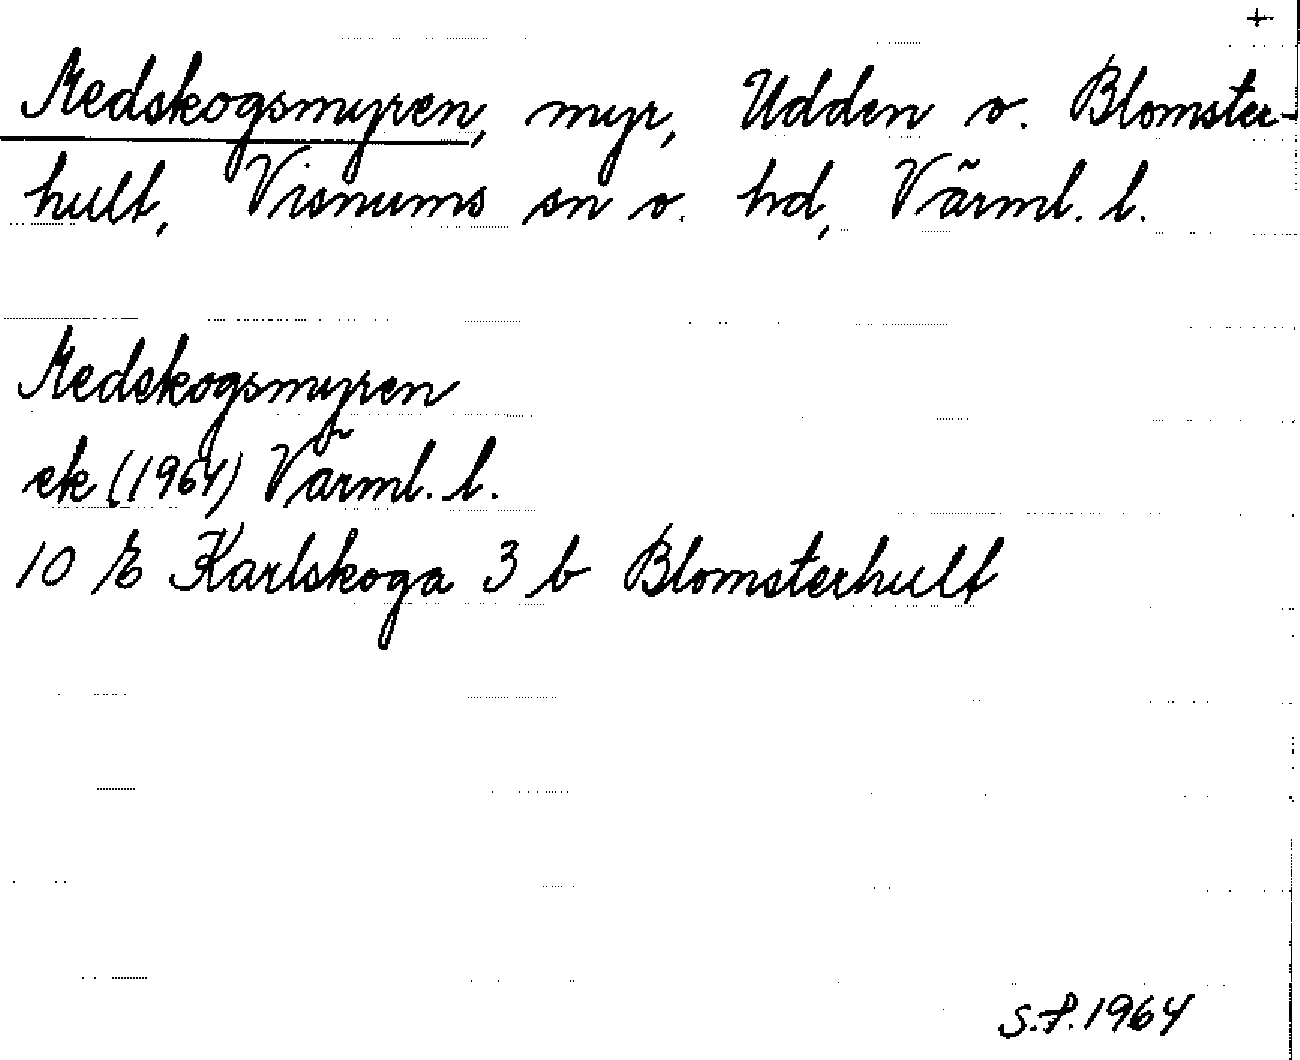 +
Medskogsmyren, myr, Udden o. Blomster-
hult, Visnums sn o. hd, Värml. l.
Medskogsmyren
ek (1964) Värml. l.
10 E Karlskoga 3 b Blomsterhult
S.P. 1964